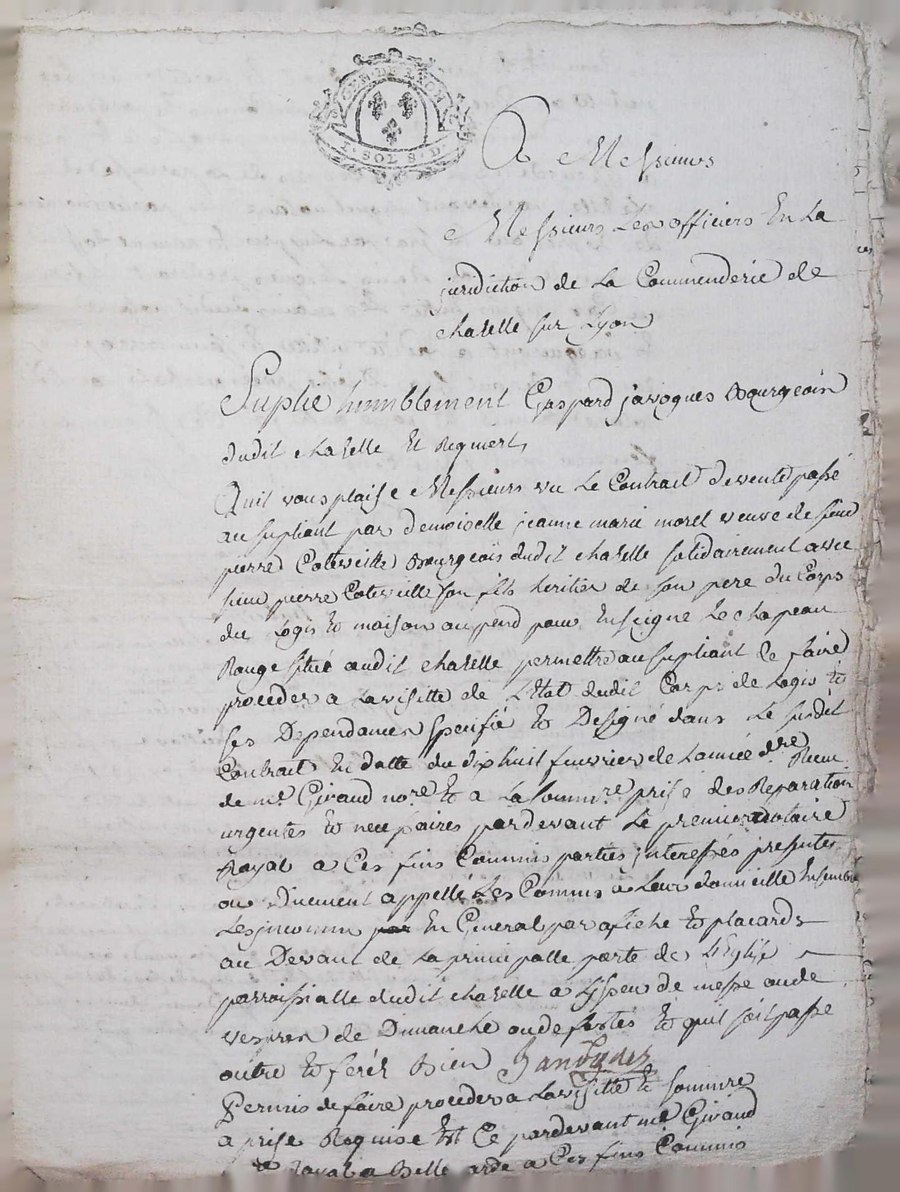 GEN. DE LYON
1. SOL 8. D.
A Messieurs
Messieurs Les officiers En La
juridiction de La Commenderie de
chaselle sur Lyon
Suplie humblement Gaspard javogues Bourgeois
dudit chaselle Et Requiert,
Quil vous plaise Messieurs vu Le Contrait de vente passé
au supliant par demoiselle jeanne marie morel veuve de sieur
pierre Coteville Bourgeois dudit chaselle solidairement avec
sieur pierre Coteville son fils heritier de son pere du Corps
du Logis Et maison au pend pour Enseigne Le chapeau
Rouge situé audit chaselle permettre au supliant de faire
proceder a La visitte de L'Etat dudit Corps de Logis Et
ses Dependances specifié Et Designé dans Le susdit
Contrait En datte du dixhuit fevrier de Lannée dre Recu
de me Giraud nore Et a La sommre prisé des Reparation
urgentes Et necessaires pardevant Le premier notaire
Royal a Ces fins Commis parties interessés presentes
ou duement appellé Les Connus à Leur domicille Ensemble
Les inconnu en General par afiche Et placards
au Devant de La principalle porte de L'Eglise
parroissialle dudit chaselle a Lissue de messe ou de
vespres de Dimanche ou de festes Et quil soit passé
outre Et ferés Bien
Permis de faire proceder a La visitte Et sommre
a prise Requise Et Ce pardevant me Giraud
Royal a Belle arde a Ces fins Commis